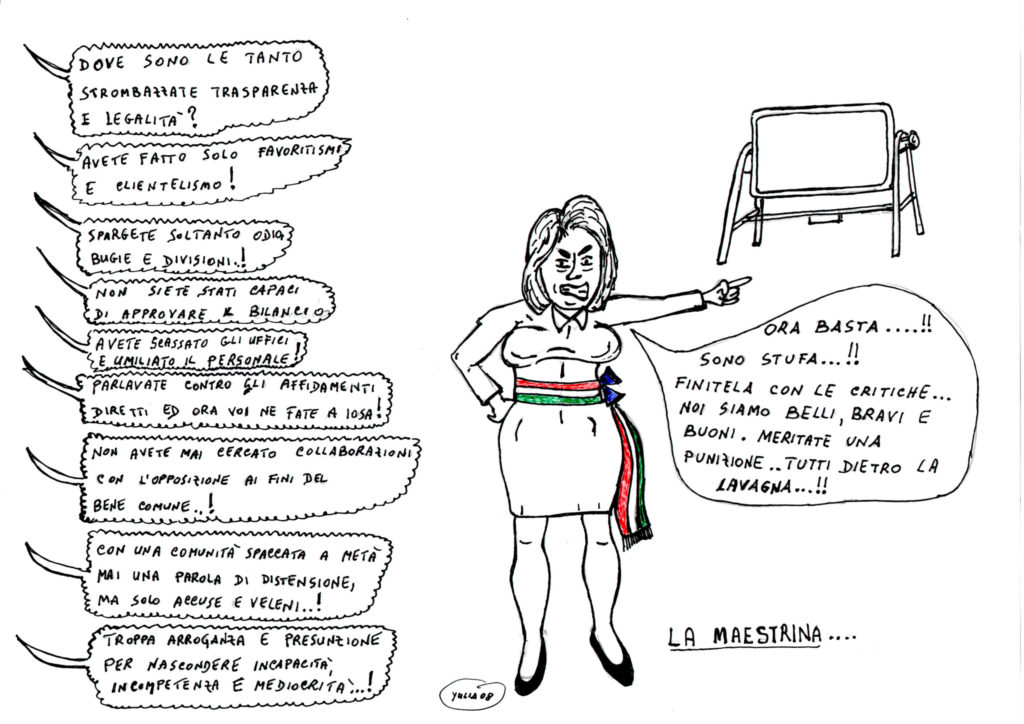 DOVE SONO LE TANTO
STROMBAZZATE TRASPARENZA
E LEGALITÀ?
AVETE FATTO SOLO FAVORITISMI
E CLIENTELISMO!
SPARGETE SOLTANTO ODIO,
BUGIE E DIVISIONI..!
NON SIETE STATI CAPACI
DI APPROVARE IL BILANCIO
AVETE SCASSATO GLI UFFICI
E UMILIATO IL PERSONALE!
PARLAVATE CONTRO GLI AFFIDAMENTI
DIRETTI ED ORA VOI NE FATE A IOSA!
NON AVETE MAI CERCATO COLLABORAZIONI
CON L'OPPOSIZIONE AI FINI DEL
BENE COMUNE..!
CON UNA COMUNITÀ SPACCATA A METÀ
MAI UNA PAROLA DI DISTENSIONE,
MA SOLO ACCUSE E VELENI..!
TROPPA ARROGANZA E PRESUNZIONE
PER NASCONDERE INCAPACITÀ,
INCOMPETENZA E MEDIOCRITÀ...!
ORA BASTA.....!!
SONO STUFA...!!
FINITELA CON LE CRITICHE...
NOI SIAMO BELLI, BRAVI E
BUONI. MERITATE UNA
PUNIZIONE..TUTTI DIETRO LA
LAVAGNA...!!
LA MAESTRINA....